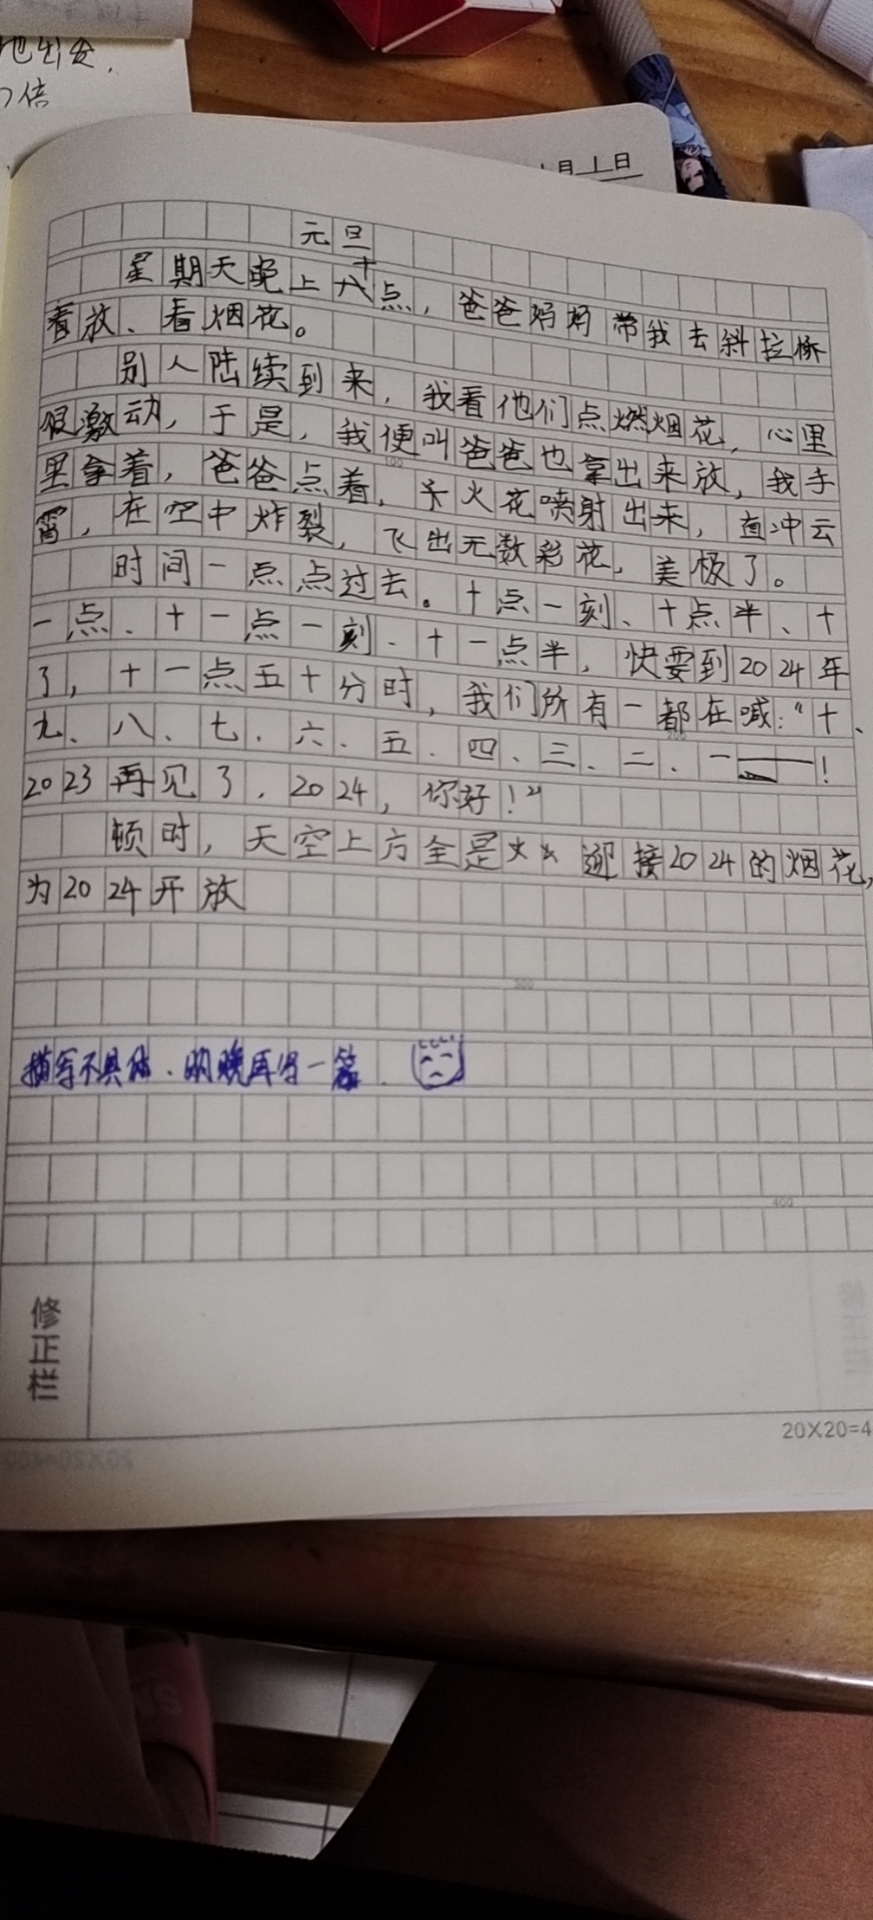 地出发,
倍
月1日
元旦
星期天晚上十点，爸爸妈妈带我去斜拉桥
看放、看烟花。
别人陆续到来，我看他们点燃烟花，心里
很激动，于是，我便叫爸爸也拿出来放，我手
里拿着，爸爸点着，火花喷射出来，直冲云
霄，在空中炸裂，飞出无数彩花，美极了。
时间一点点过去。十点一刻、十点半、十
一点、十一点一刻、十一点半，快要到2024年
了，十一点五十分时，我们所有一都在喊：“十、
九、八、七、六、五、四、三、二、一——！
2023再见了，2024，你好！”
顿时，天空上方全是火 迎接2024的烟花，
为2024开放
描写不具体.明晚再写一篇.
修正栏
20X20=4
100
200
300
400